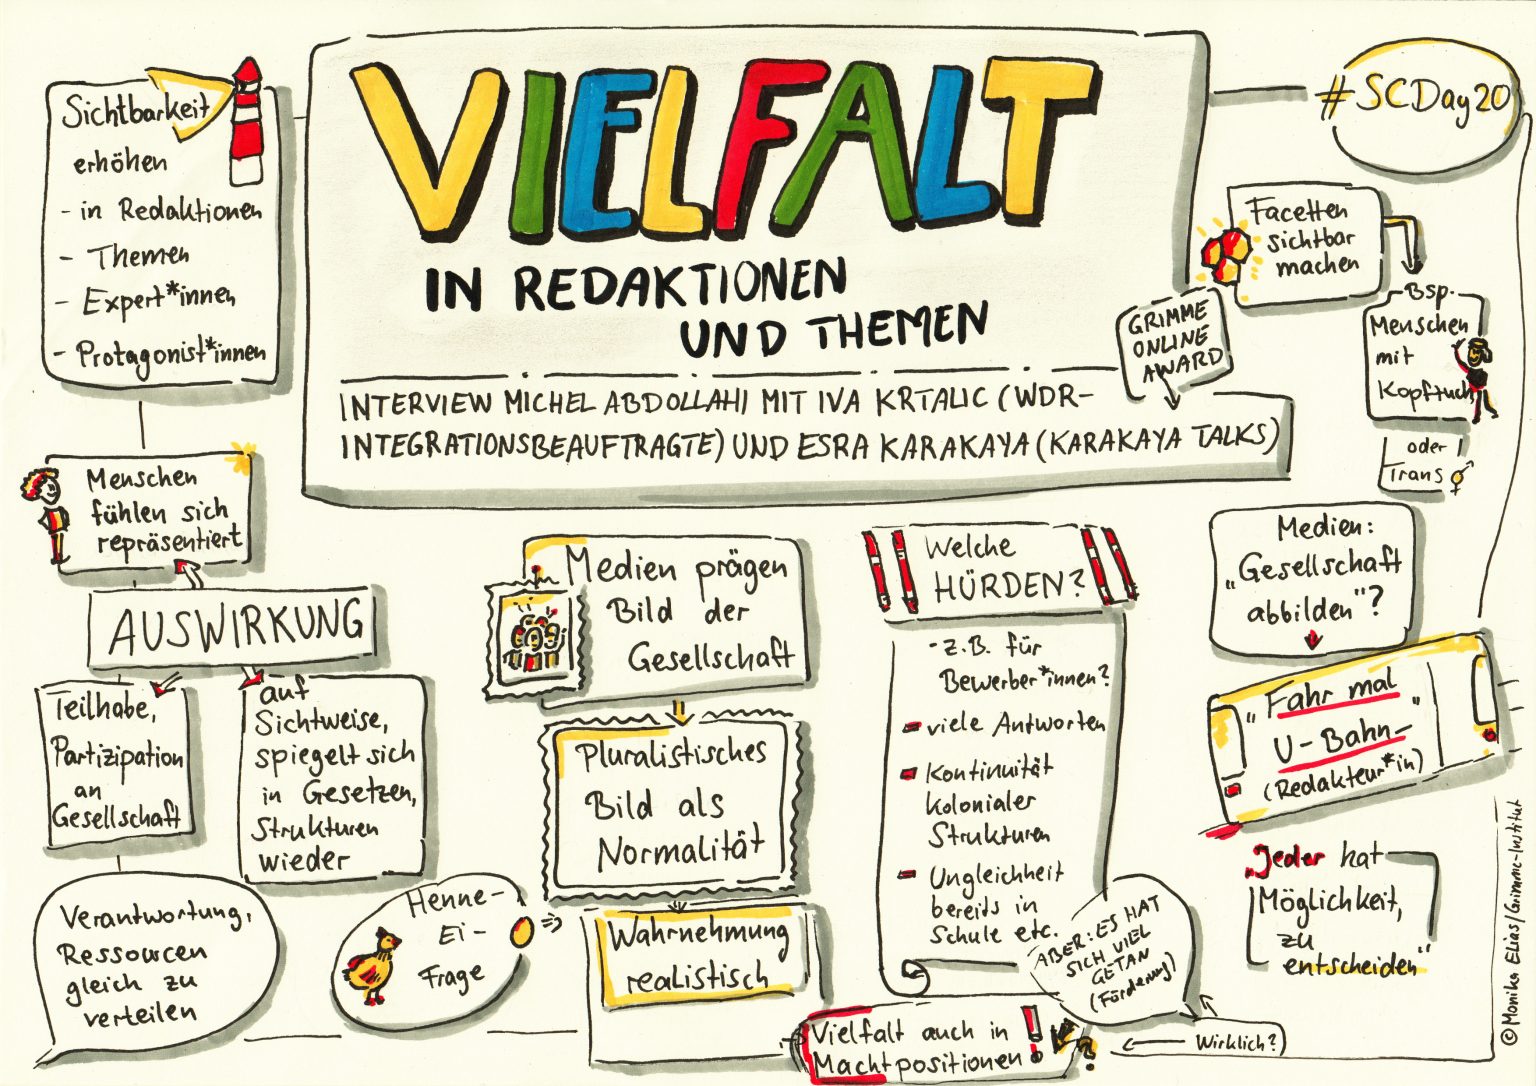 VIELFALT
IN REDAKTIONEN
UND THEMEN
INTERVIEW MICHEL ABDOLLAHI MIT IVA KRTALIC (WDR-
INTEGRATIONSBEAUFTRAGTE) UND ESRA KARAKAYA (KARAKAYA TALKS)
GRIMME
ONLINE
AWARD
#SCDay20
Sichtbarkeit
erhöhen
- in Redaktionen
- Themen
- Expert*innen
- Protagonist*innen
Menschen
fühlen sich
repräsentiert
AUSWIRKUNG
Teilhabe,
Partizipation
an
Gesellschaft
auf
Sichtweise,
spiegelt sich
in Gesetzen,
Strukturen
wieder
Verantwortung,
Ressourcen
gleich zu
verteilen
Henne-
Ei-
Frage
Medien prägen
Bild der
Gesellschaft
Pluralistisches
Bild als
Normalität
Wahrnehmung
realistisch
Vielfalt auch in
Machtpositionen!
?
Wirklich?
Welche
HÜRDEN?
- z.B. für
Bewerber*innen?
- viele Antworten
- Kontinuität
kolonialer
Strukturen
- Ungleichheit
bereits in
Schule etc.
ABER: ES HAT
SICH VIEL
GETAN
(Förderung)
Facetten
sichtbar
machen
Bsp.
Menschen
mit
Kopftuch
oder
Trans
Medien:
"Gesellschaft
abbilden"?
"Fahr mal
U-Bahn"
(Redakteur*in)
Jeder hat
Möglichkeit,
zu
entscheiden"
© Monika Elias/Grimme-Institut